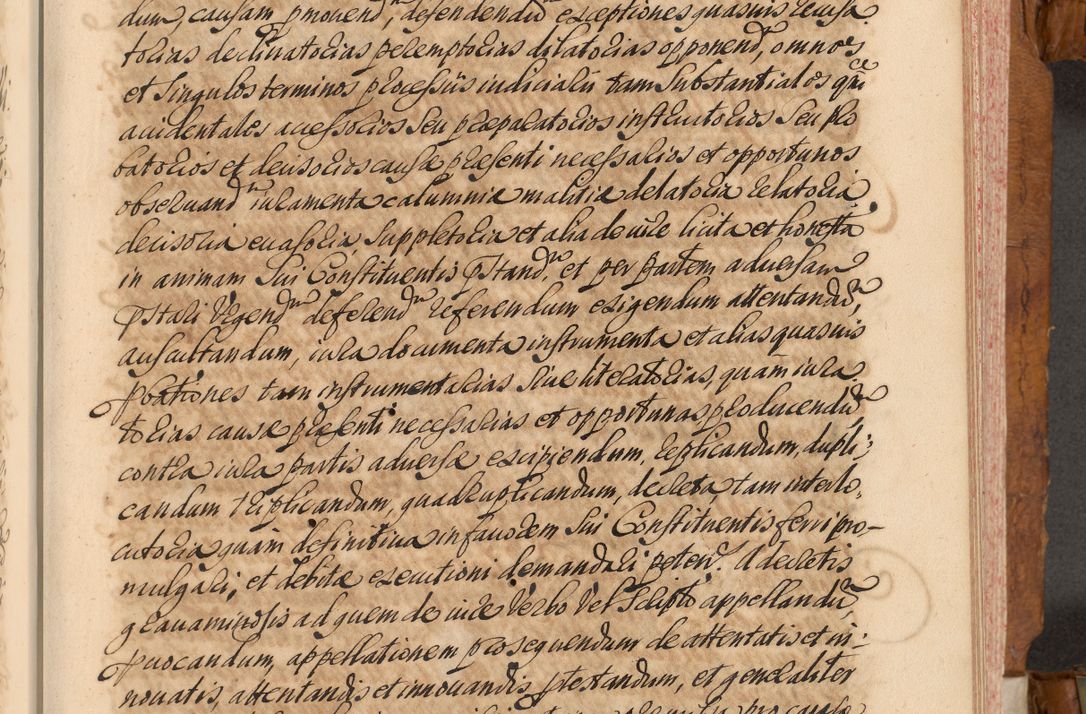 dum, causam pmovend, defendendū exceptiones quasuis recusa
torias declinatorias peremptorias dilatorias opponend, omnes
et singulos terminos processûs iudicialis tam substantiales quā
accidentales accessorios seu præparatorios instructorios seu pro
batorios et decisorios causæ præsenti necessarios et opportunos
observand, iuramenta calumniæ malitiæ delatoria relatoria,
decisoria euasoria, suppletoria et alia de iure licita et honesta
in animam sui Constituentis pstand, et per partem adversam
pstari vrgend, deferend, referendum exigendum attentandū,
auscultandum, iura documenta instrumenta et alias quasuis
pbationes tam instrumentarias siue literatorias, quàm iura
torias causæ præsenti necessarias et opportunas producendū
contra iura partis adversæ excipiendum, replicandum, dupli;
candum triplicandum, quadruplicandum, decreta tam interlo,
cutoria quàm definitiua in fauorem sui Constituentis ferri pro-
mulgari, et debitæ executioni demandari peten. A decretis
grauaminosis ad quem de iure verbo vel scripto appellandū,
puocandum, appellationem prosequendum de attentatis et in:
nouatis, attentandis et innouandis, ptestandum, et generaliter